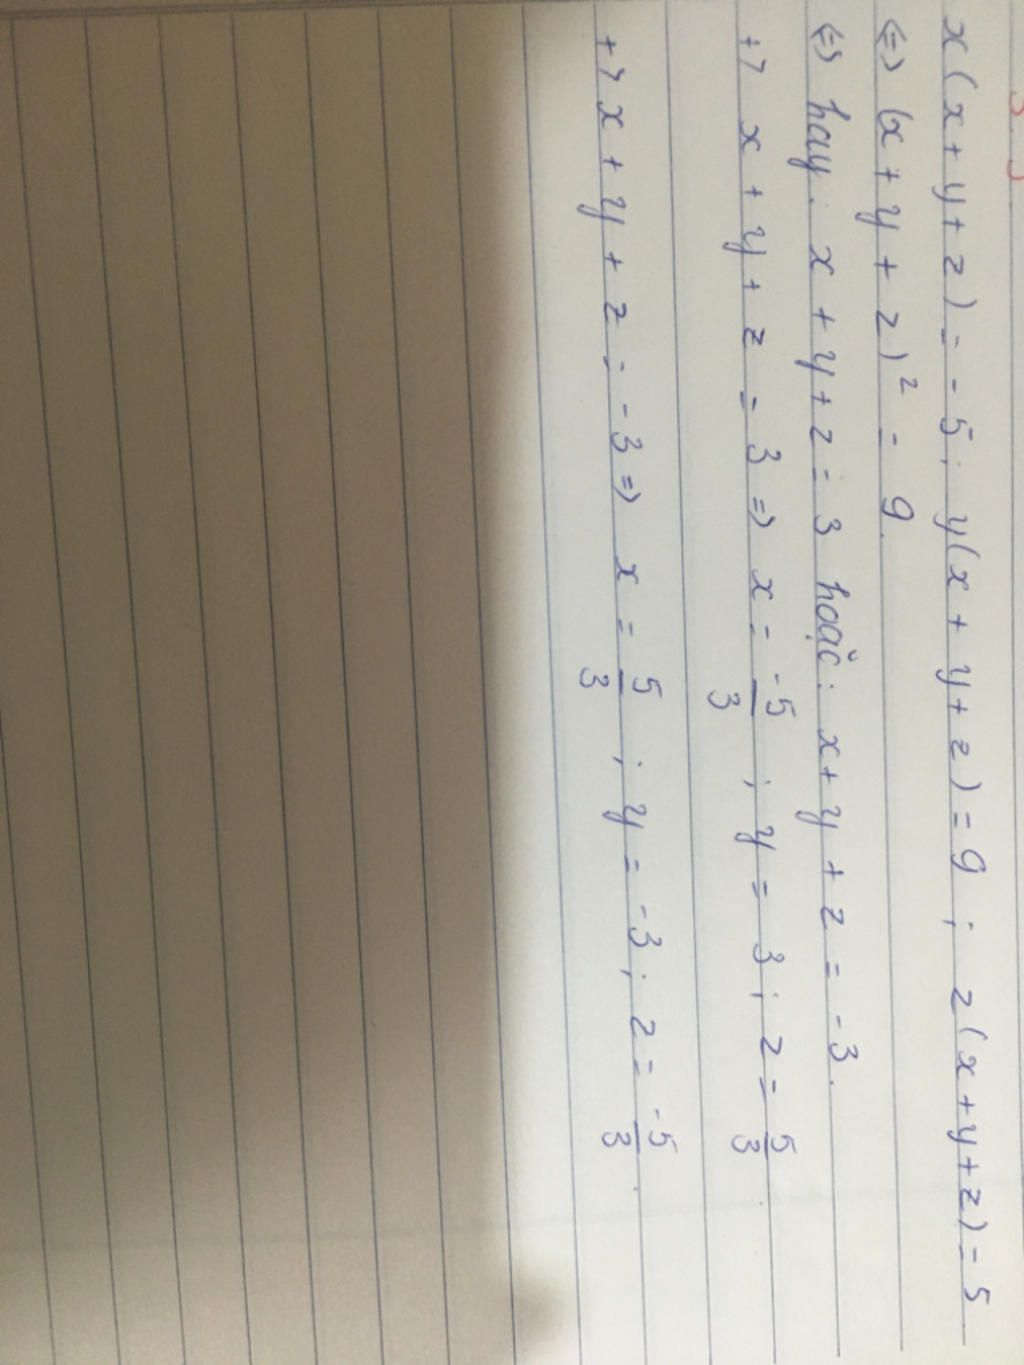 x(x+y+z) = -5; y(x+y+z) = 9; z(x+y+z) = 5
<=> (x+y+z)² = 9.
<=> hay: x+y+z = 3 hoặc: x+y+z = -3.
+> x+y+z = 3 => x = -5/3; y = 3; z = 5/3
+> x+y+z = -3 => x = 5/3; y = -3; z = -5/3.